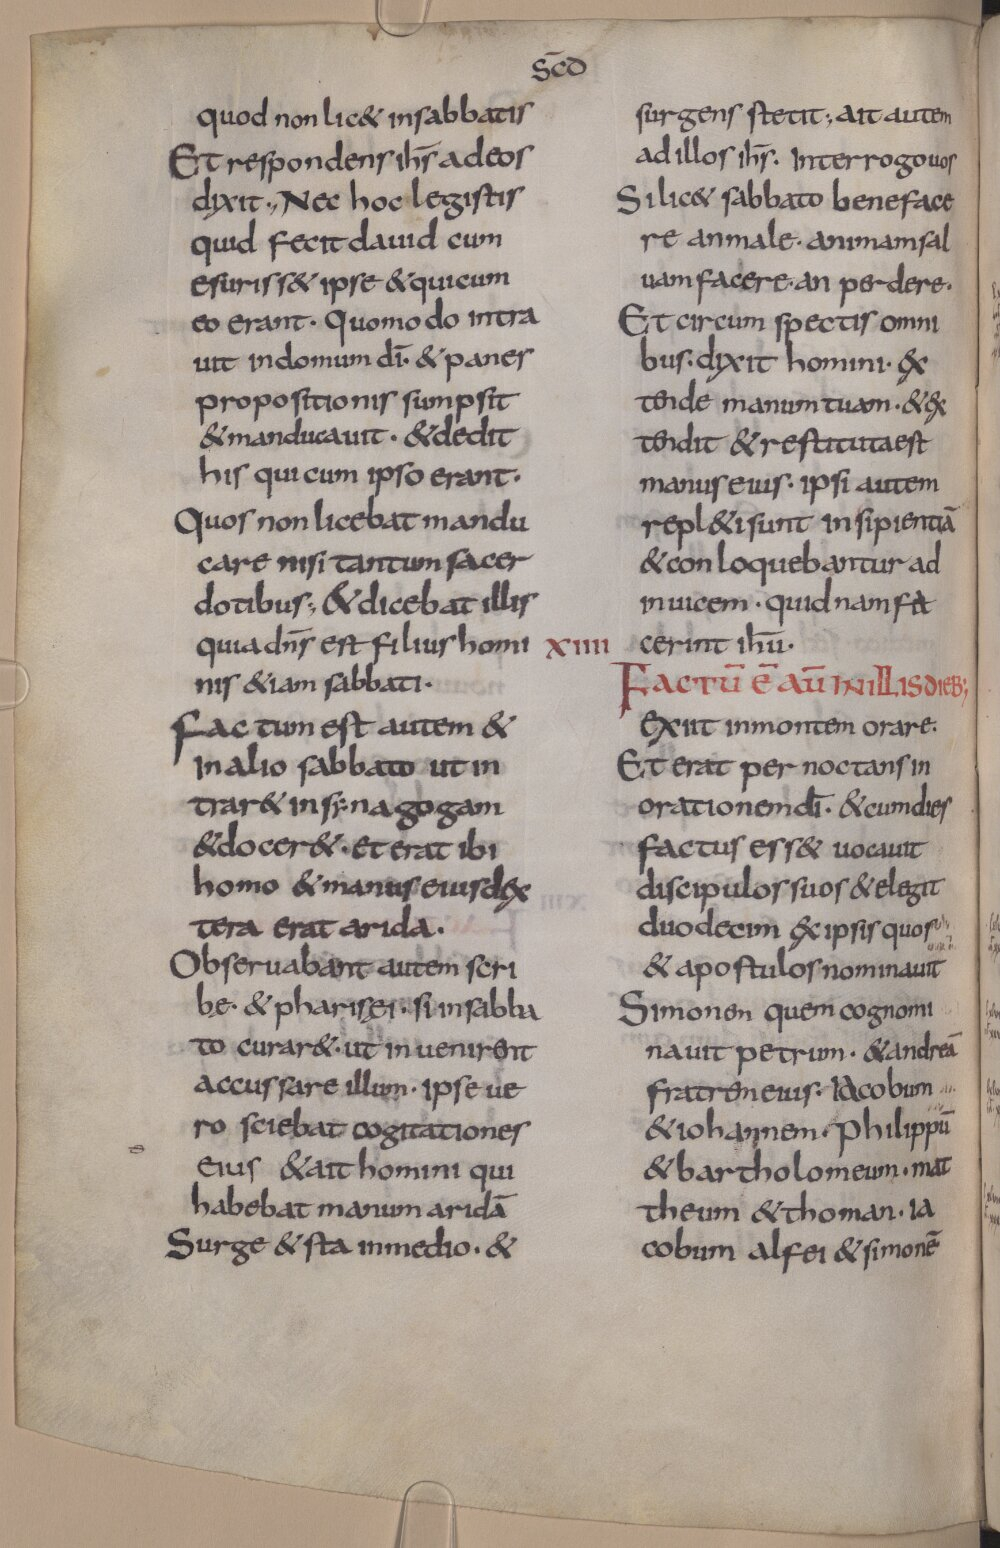 Scđ
quod non lic& insabbatis
Et respondens ihs̄ adeos
dixit·, Nec hoc legistis
quid fecit dauid cum
esuriss& ipse &quicum
eo erant· Quomodo intra
uit indomum dī· & panes
propositionis sumpsit
&manducauit· &dedit
his qui cum ipso erant·
Quos non licebat mandu
care nisi tantum sacer
dotibus·, &dicebat illis
quia dn̄s est filius homi
nis &iam sabbati·
Factum est autem &
inalio sabbato ut in
trar& in synagogam
&docer&· Et erat ibi
homo &manus eius dex
tera erat arida·
Obseruabant autem scri
bę· & pharisęi· si insabba
to curar&· ut inuenirent
accussare illum· ipse ue
ro sciebat cogitationes
eius &ait homini qui
habebat manum aridā
Surge & sta inmedio· &
surgens stetit·, ait autem
ad illos ihs̄· Interrogo uos
Si lic& sabbato beneface
re an male· animam sal
uam facere· an perdere·
Et circum spectis omni
bus· dixit homini· ex
tende manum tuam· &ex
tendit & restituta est
manus eius· ipsi autem
repl&i sunt insipientiā
&conloquebantur ad
inuicem· quidnam fe
cerint ihū·
XIIII
Factū ē aū inillis dieb;
Exiit inmontem orare·
Et erat per noctans in
orationem dī· &cum dies
factus ess& uocauit
discipulos suos & elegit
duodecim ex ipsis quos
& apostulos nominauit
Simonen quem cognomi
nauit petrum· &andreā
fratrem eius· Iacobum
&iohannem· Philippū
&bartholomeum· mat
theum &thoman· ia
cobum alfei &simonē